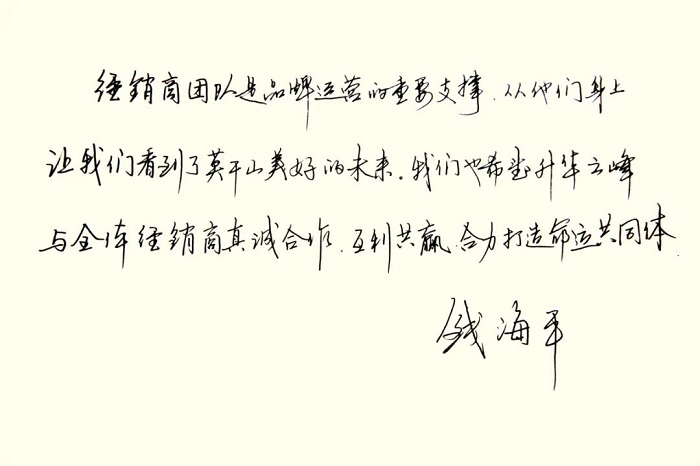 经销商团队是品牌运营的重要支撑,从他们身上
让我们看到了莫干山美好的未来。我们也希望升华云峰
与全体经销商真诚合作,互利共赢,合力打造命运共同体.
钱海平